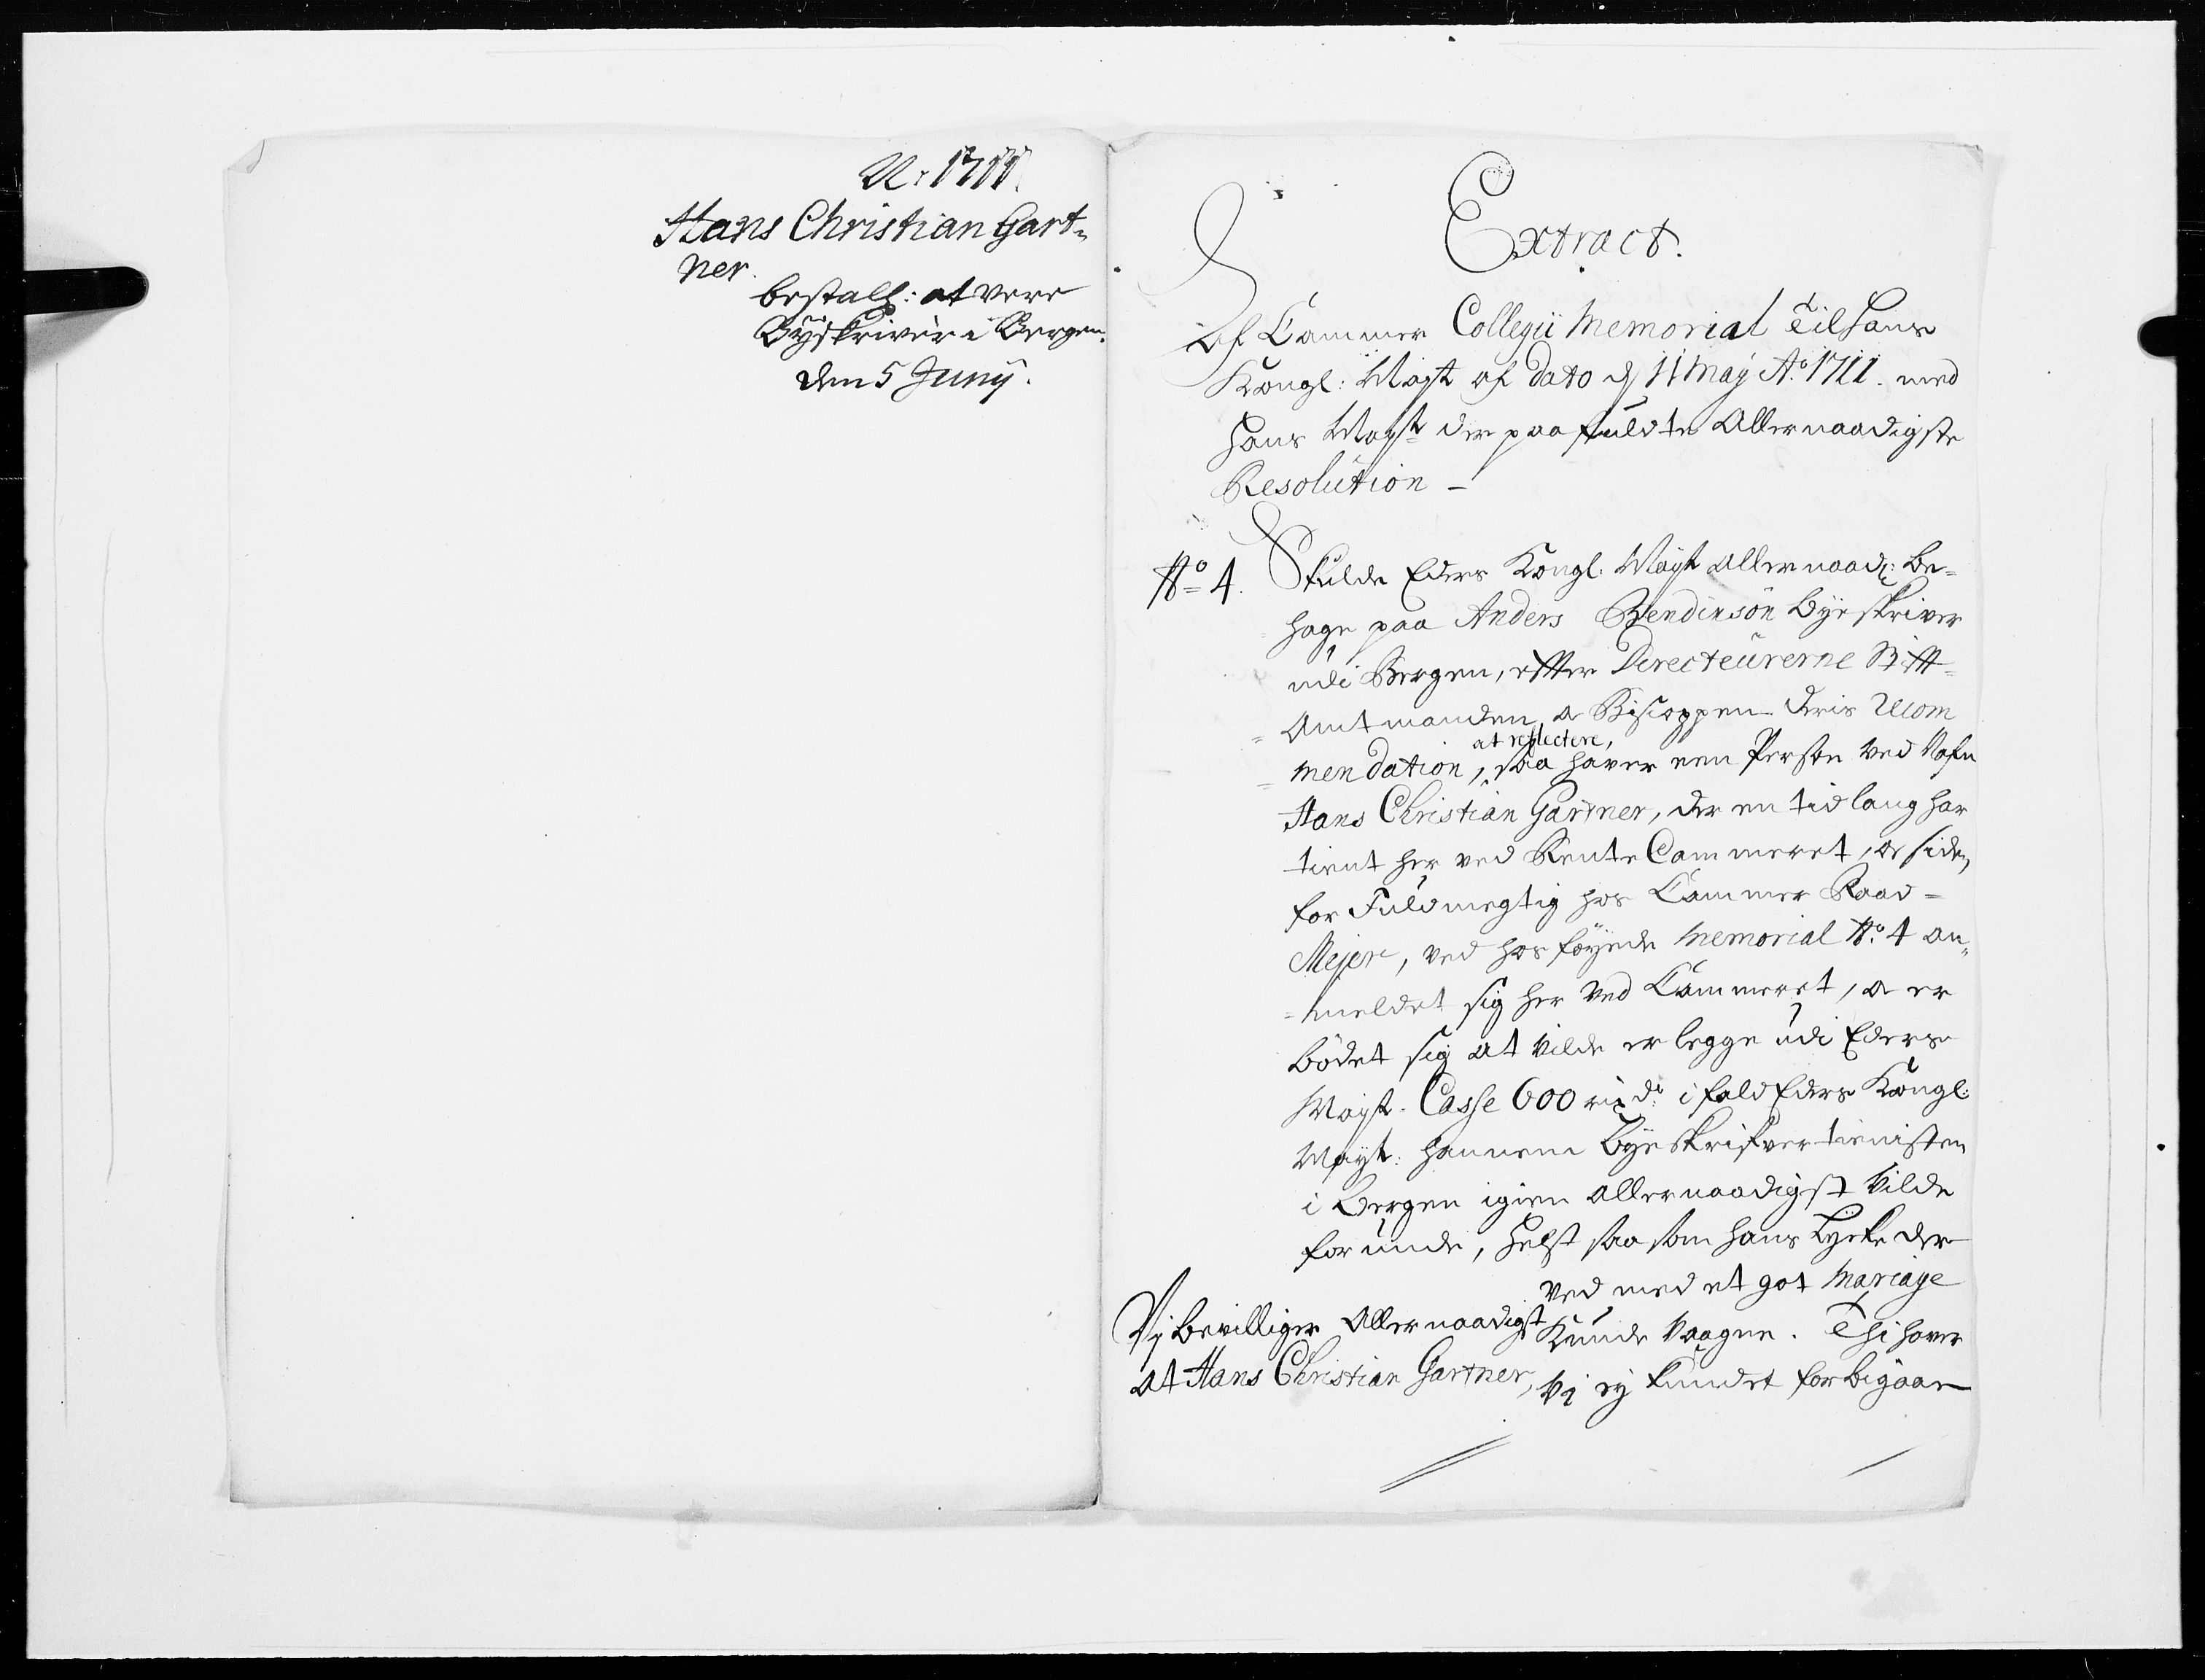 A: 1711.
Hans Christian Gart-
ner.
bestall: at vere
Byskriver i Bergen.
den 5 Junij.
Extract.
Af Cammer Collegii Memorial til Hans
Kongl: Mayt af dato d 11 Maij Ao 1711. med
Hans Mayts der paa fuldte Allernaadigste
Resolution -
No 4. Skulde Eders Kongl. Mayt allernaad: be-
hage paa Anders Bendixsön Byeskriver
udi Bergen, efter Directeurerne Stift-
Amtmanden, og Bisoppen deris Recom
at reflectere,
mendation, saa haver een Person ved Nafn
Hans Christian Gartner, der en tid lang har
tient her ved Rente Cammeret, og siden
for Fuldmegtig hos Cammer Raad
Mejer, ved hosföyede Memorial No. 4 an-
meldet sig her ved Cammeret, og er
bödet sig at vilde erlegge udi Eders
Mayt. Casse 600 rixdr: i fald Eders Kongl:
Mayt: hannem Byeskrifver tienisten
i Bergen igien allernaadigst vilde
forunde, helst saasom hans Lycke der
ved med et got Mariage
Vj bevilliger Allernaadigst
kunde vaagne. Thi haver
at Hans Christian Gartner,
vj ej kundet forbigaae